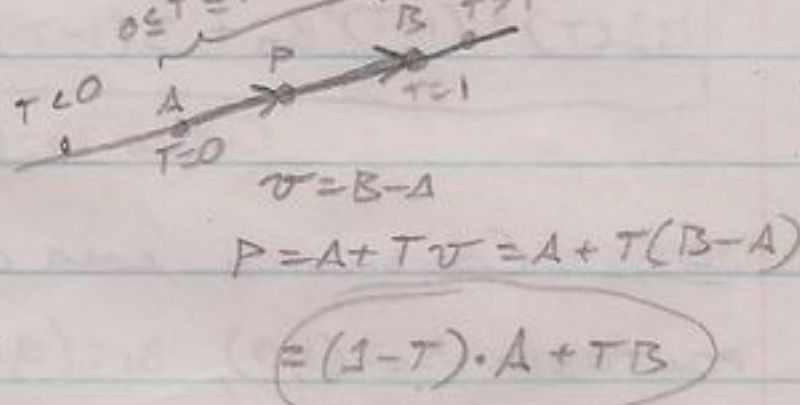 0≤T≤
B T>1
P
T<0 A T=1
T=0
v=B-A
P=A+Tv=A+T(B-A)
=(1-T)·A+TB